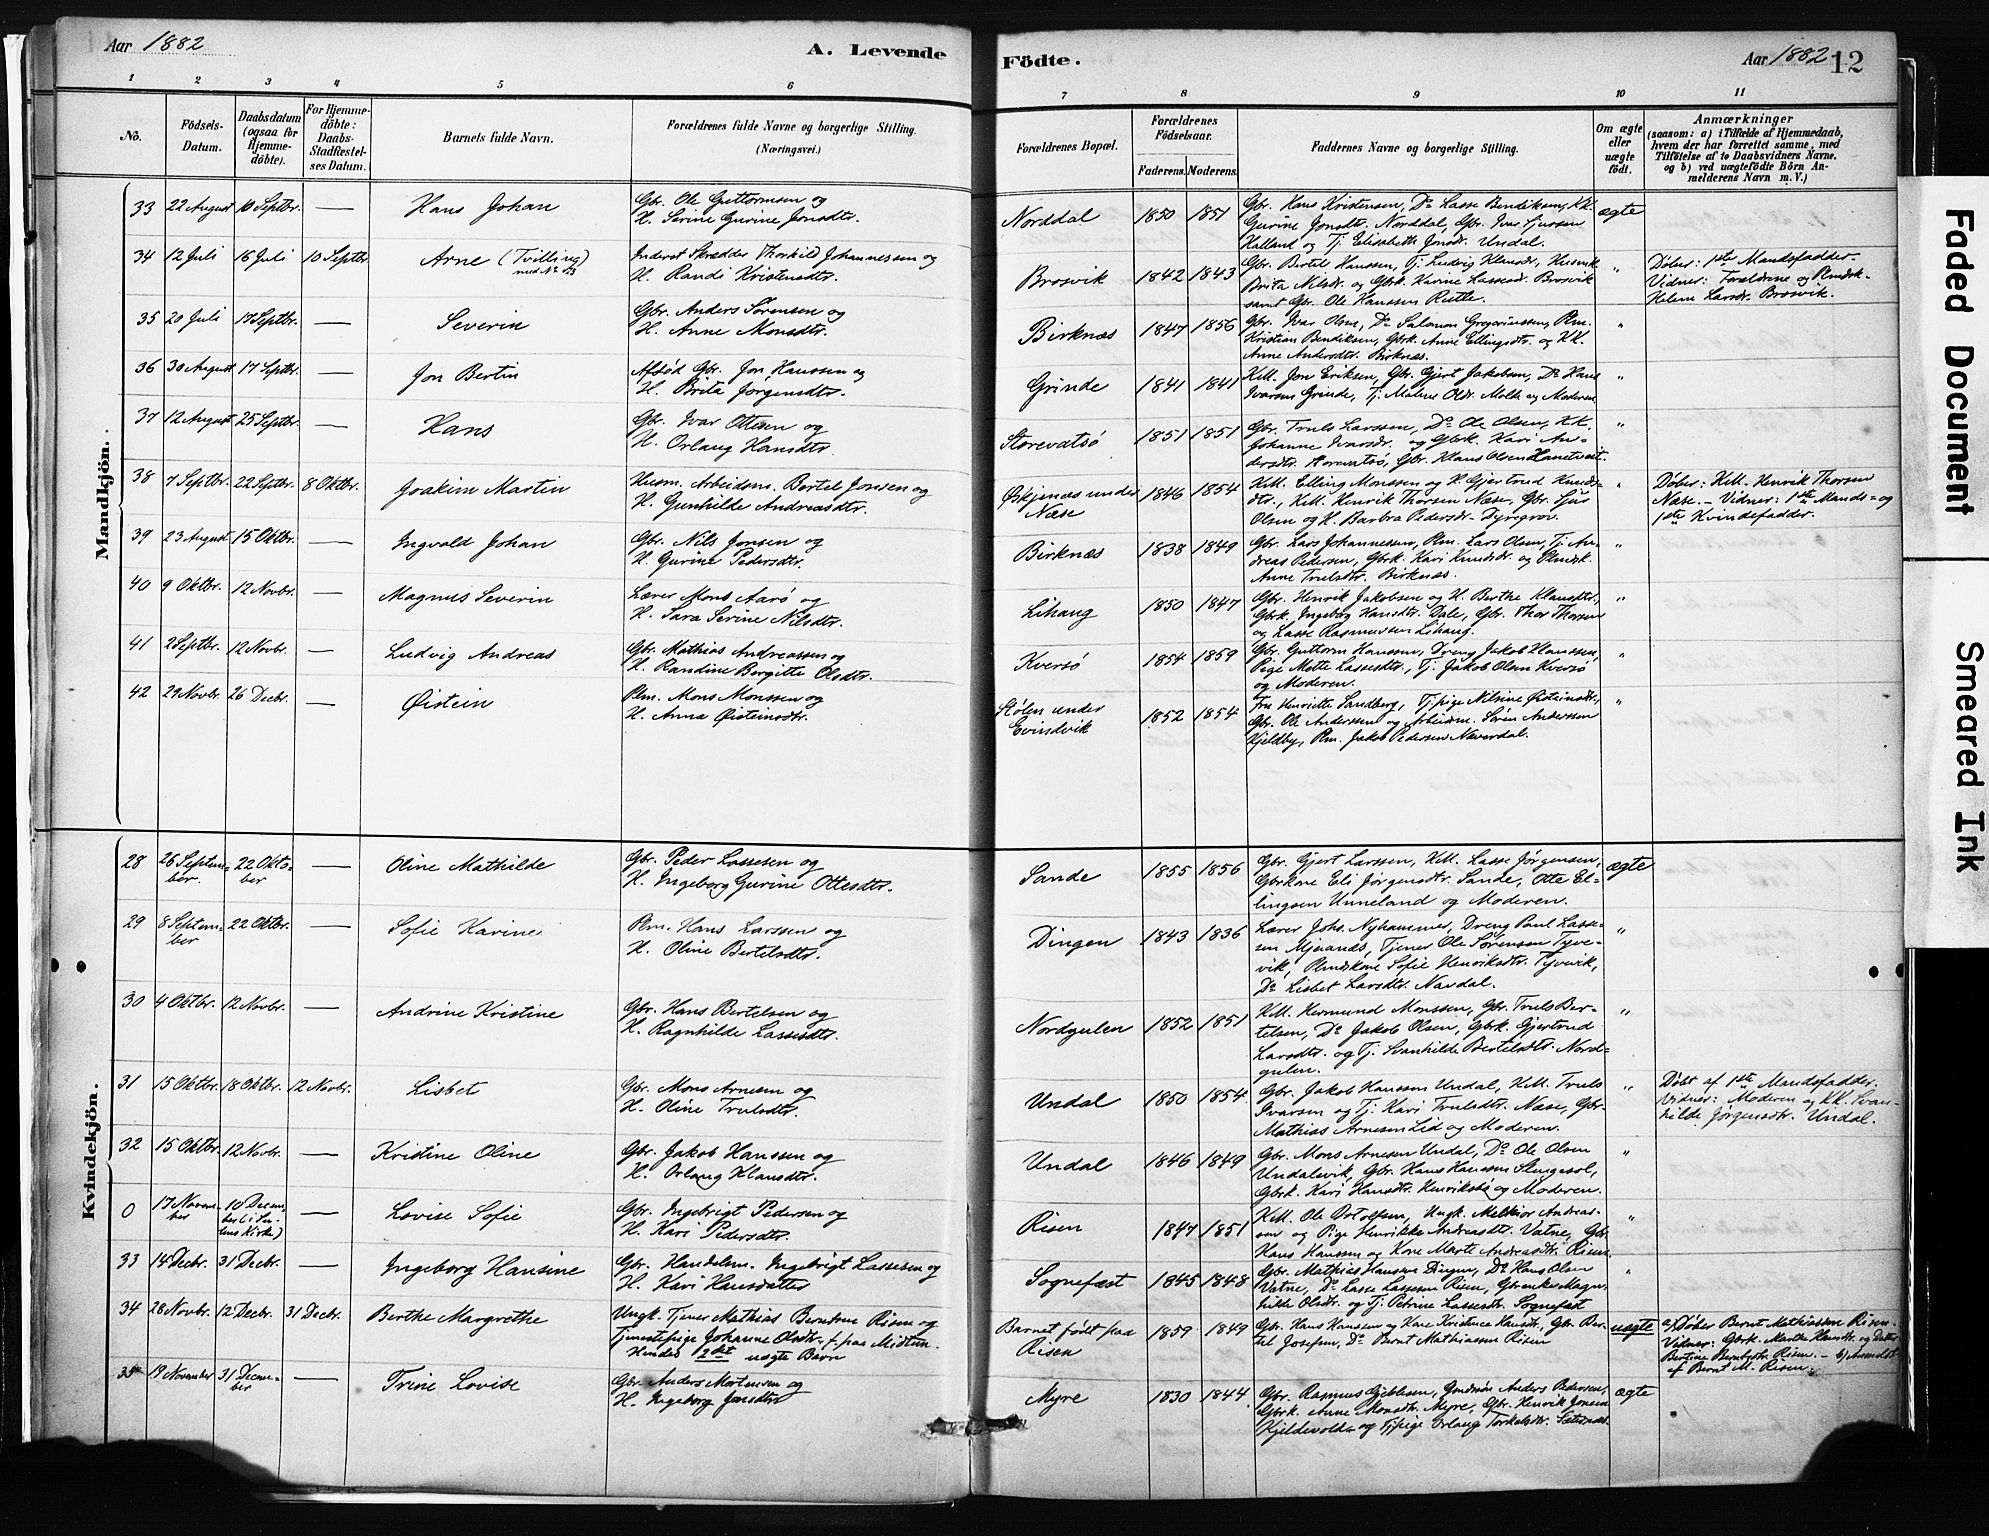 Aar 1882
A. Levende
Födte.
Aar 1882
12
1 2 3 4 5 6 7 8 9 10 11
No.
Födsels-
Datum.
Daabsdatum
(ogsaa for
Hjemme-
döbte).
For Hjemme-
döbte:
Daabs-
Stadfæstel-
ses Datum.
Barnets fulde Navn.
Forældrenes fulde Navne og borgerlige Stilling.
(Næringsvei.)
Forældrenes Bopæl.
Forældrenes
Födselsaar.
Faderens. Moderens.
Faddernes Navne og borgerlige Stilling.
Om ægte
eller
uægte
födt.
Anmærkninger
(saasom: a) i Tilfælde af Hjemmedaab,
hvem der har forrettet samme, med
Tilföielse af to Daabsvidners Navne,
og b) ved uægtefödte Börn An-
melderens Navn m. V.)
Mandkjön.
33 22 August 10 Septbr. — Hans Johan
Gbr. Ole Guttormsen og
H. Serine Gurine Jonsdtr.
Norddal 1850 1851
Gbr. Hans Kristensen, Do Lasse Bendiksen, KK.
Gurine Jonsdtr. Norddal, Gbr. Ivar Sjursen
Halland og Tj. Elisabeth Jonsdr. Undal.
ægte
34 12 Juli 16 Juli 10 Septbr. Arne (Tvilling)
Inderst Skrædder Thorkild Johannesen og
H. Randi Kristensdtr.
Brosvik 1842 1843
Gbr. Bertel Hanssen, Tj. Ludvig Hansdr., Husmk.
Brita Nilsdr. og Gbrk. Karine Lassesd. Brosvik
samt Gbr. Ole Hanssen Rutle.
"
Döber: 1ste Mandsfadder.
Vidner: Forældrene og Plmdsk.
Helene Larsdr. Brosvik.
35 20 Juli 17 Septbr. — Severin
Gbr. Anders Sørensen og
H. Anne Monsdtr.
Birknæs 1847 1856
Gbr. Ivar Olsen, Do Salomon Gregoriussen, Plm.
Kristian Bendiksen, Gbrk. Anne Ellingsdtr. og KK.
Anne Andersdtr. Birknæs.
"
36 30 August 17 Septbr. — Jon Bertin
Afdød Gbr. Jon Hanssen og
H. Brite Jørgensdtr.
Grinde 1841 1841
Kell. Jon Eriksen, Gbr. Gjert Jakobsen, Do Hans
Ivarsen Grinde, Tj. Malene Oldr. Molde og Moderen
"
37 12 August 25 Septbr. — Hans
Gbr. Ivar Ottesen og
H. Orlaug Hansdtr.
Storevatsö 1851 1851
Gbr. Truls Larssen, Do Ole Olsen, KK.
Johanne Ivarsdr. og Gbrk. Kari An-
dersdtr. Storevatsö, Gbr. Klaus Olsen Hantveit.
"
38 7 Septbr. 22 Septbr. 8 Oktbr. Joakim Martin
Husm. Arbeidsm. Bertel Jonsen og
H. Gunhilde Andreasdtr.
Øskjenæs under
Næse 1846 1854
Kell. Elling Monssen og H. Gjertrud Knuds-
dtr., Kell. Henrik Thorsen Næse, Gbr. Sjur
Olsen og H. Barbra Pedersdr. Dyregrov.
"
Döber: Kell. Henrik Thorsen
Næse. – Vidner: 1ste Mands- og
1ste Kvindefadder.
39 23 August 15 Oktbr. — Ingvald Johan
Gbr. Nils Jonsen og
H. Gurine Pedersdtr.
Birknæs 1838 1849
Gbr. Lars Johannessen, Plm. Lars Olsen, Tj. An-
dreas Pedersen, Gbrk. Kari Knudsdtr. og Plmdsk.
Anne Trulsdtr. Birknæs.
"
40 9 Oktbr. 12 Novbr. — Magnus Severin
Lærer Mons Aarö og
H. Sara Serine Nilsdtr.
Lihaug 1850 1847
Gbr. Henrik Jakobsen og H. Berthe Klausdtr.,
Gbrk. Ingeborg Hansdtr. Dale, Gbr. Thor Thorsen
og Lasse Rasmussen Lihaug.
"
41 2 Septbr. 12 Novbr. — Ludvig Andreas
Gbr. Mathias Andreassen og
H. Randine Borgitte Olsdtr.
Kversö 1854 1859
Gbr. Guttorm Hanssen, Dreng Jakob Hanssen,
Pige Mette Lassesdtr., Tj. Jakob Olsen Kversö
og Moderen.
"
42 29 Novbr. 26 Decbr. — Øistein
Plm. Mons Monssen og
H. Anna Øisteinsdtr.
Stölen under
Evindvik 1852 1854
Fru Henriette Sandberg, Tj.pige Nilsine Øisteinsdtr.,
Gbr. Ole Anderssen og Arbeidsm. Søren Anderssen
Kjeldby, Plm. Jakob Pedersen Næverdal.
"
Kvindekjön.
28 26 Septem-
ber. 22 Okto-
ber — Oline Mathilde
Gbr. Peder Lassesen og
H. Ingeborg Gurine Ottesdtr.
Sande 1855 1856
Gbr. Gjert Larssen, Kell. Lasse Jørgensen,
Gbrkone Eli Jørgensdtr. Sande, Otte El-
lingsen Unneland og Moderen.
ægte
29 8 Septem-
ber 22 Oktbr. — Sofie Karine
Plm. Hans Larssen og
H. Oline Bertelsdtr.
Dingen 1843 1836
Lærer Johs. Nyhammer, Dreng Paul Lasse-
sen Mjeranæs, Tjener Ole Sörensen Tyve-
vik, Plmdskone Sofie Henriksdtr. Tyvevik,
Do Lisbet Larsdtr. Nardal.
"
30 4 Oktbr. 12 Novbr. — Andrine Kristine
Gbr. Hans Bertelsen og
H. Ragnhilde Lassesdtr.
Nordgulen 1852 1851
Kell. Hermund Monssen, Gbr. Truls Ber-
telsen, Do Jakob Olsen, Gbrk. Gjertrud
Larsdtr. og Tj. Svanhilde Bertelsdtr. Nord-
gulen.
"
31 15 Oktbr. 18 Oktbr. 12 Novbr. Lisbet
Gbr. Mons Arnesen og
H. Oline Trulsdtr.
Undal 1850 1854
Gbr. Jakob Hanssen Undal, Kell. Truls
Ivarsen og Tj. Kari Trulsdtr. Næse, Gbr.
Mathias Arnesen Lid og Moderen.
"
Döbt af 1ste Mandsfadder.
Vidner: Moderen og KK. Svan-
hilde Jørgensdtr. Undal.
32 15 Oktbr. 12 Novbr. — Kristine Oline
Gbr. Jakob Hanssen og
H. Orlaug Klausdtr.
Undal 1846 1849
Gbr. Mons Arnesen Undal, Do Ole Olsen
Undalsvik, Gbr. Hans Hanssen Slengesol,
Gbrk. Kari Hansdtr. Henriksbö og Moderen.
"
0 17 Novem-
ber 10 Decem-
ber — Lovise Sofie
Gbr. Ingebrigt Pedersen og
H. Kari Pedersdtr.
Risen 1847 1851
Kell. Ole Botolfsen, Ungk. Melkior Andreas-
sen og Pige Henrikke Andreasdtr. Vatne, Gbr.
Hans Hanssen og Kone Marte Andreasdtr. Risen.
"
33 14 Decbr. 31 Decbr. — Ingeborg Hansine
Gbr. Handelsm. Ingebrigt Lassesen og
H. Kari Hansdatter
Sognefæst 1845 1848
Gbr. Mathias Hansen Dingen, Do Hans Olsen
Vatne, Do Lasse Lassesen Risen, Gbrenke Magn-
hilde Olsdtr. og Tj. Petrine Lassesdtr. Sognefæst
"
34 28 Novbr. 12 Decbr. 31 Decbr. Berthe Margrethe
Ungk. Tjener Mathias Berntsen Risen og
Tjenestepige Johanne Olsdtr. f. paa Midtun.
Hendes 2det uægte Barn
Barnet födt paa
Risen 1859 1849
Gbr. Hans Hansen og Kone Kristence Hansdtr., Gbr. Ber-
tel Josefsen, Do Bernt Mathiassen Risen
uægte
a) Döber Bernt Mathiassen Risen.
Vidner: Gbrk. Marthe Hansdtr. og Datter
Bertine Berntsdtr. Risen. – b) Anmeldt
af Bernt M. Risen.
35 19 November 31 Decem-
ber — Trine Lovise
Gbr. Anders Mortensen og
H. Ingeborg Jonsdtr.
Myre 1830 1844
Gbr. Rasmus Gjeblesen, Anders Pedersen,
Gbrk. Anne Monsdtr. Myre, Gbr. Henrik Jonsen
Kjeldevold og Tj.pige Orlaug Torkelsdtr. Sæternæs
ægte
Faded Document
Smeared Ink